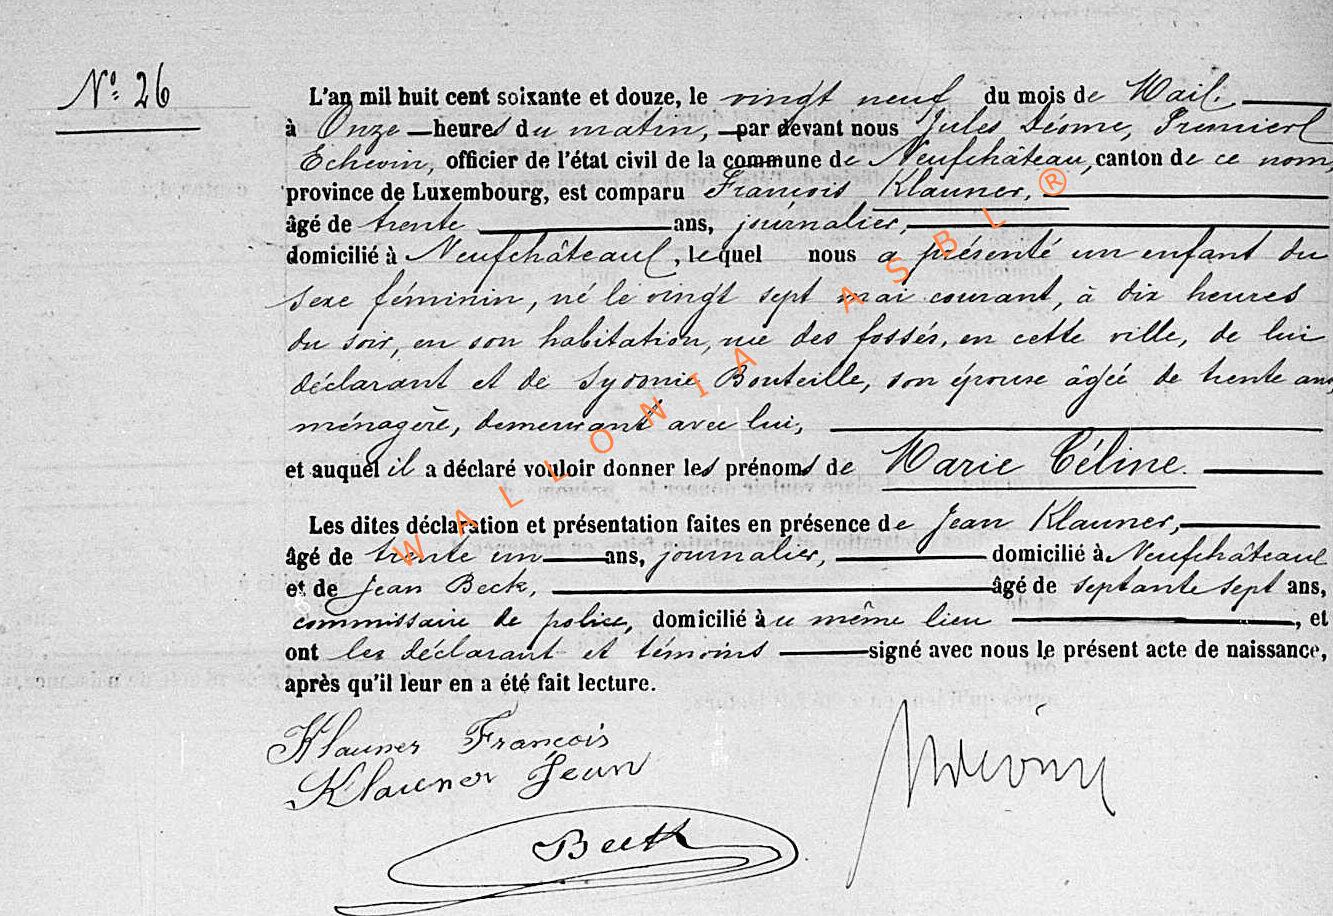 N°: 26
L'an mil huit cent soixante et douze, le vingt neuf du mois de Mai
à Onze heures du matin, par devant nous Jules Déome, Premier
Echevin, officier de l'état civil de la commune de Neufchâteau, canton de ce nom,
province de Luxembourg, est comparu François Klauner,
âgé de trente ans, journalier,
domicilié à Neufchâteau, lequel nous a présenté un enfant du
sexe féminin, né le vingt sept mai courant, à dix heures
du soir, en son habitation, rue des fossés, en cette ville, de lui
déclarant et de Sydonie Bouteille, son épouse âgée de trente ans,
ménagère, demeurant avec lui,
et auquel il a déclaré vouloir donner les prénoms de Marie Céline.
Les dites déclaration et présentation faites en présence de Jean Klauner,
âgé de trente un ans, journalier, domicilié à Neufchâteau
et de Jean Beck, âgé de septante sept ans,
commissaire de police, domicilié à ce même lieu, et
ont les déclarant et témoins signé avec nous le présent acte de naissance,
après qu'il leur en a été fait lecture.
Klauner François
Klauner Jean
Beck
WALLONIA ASBL ®